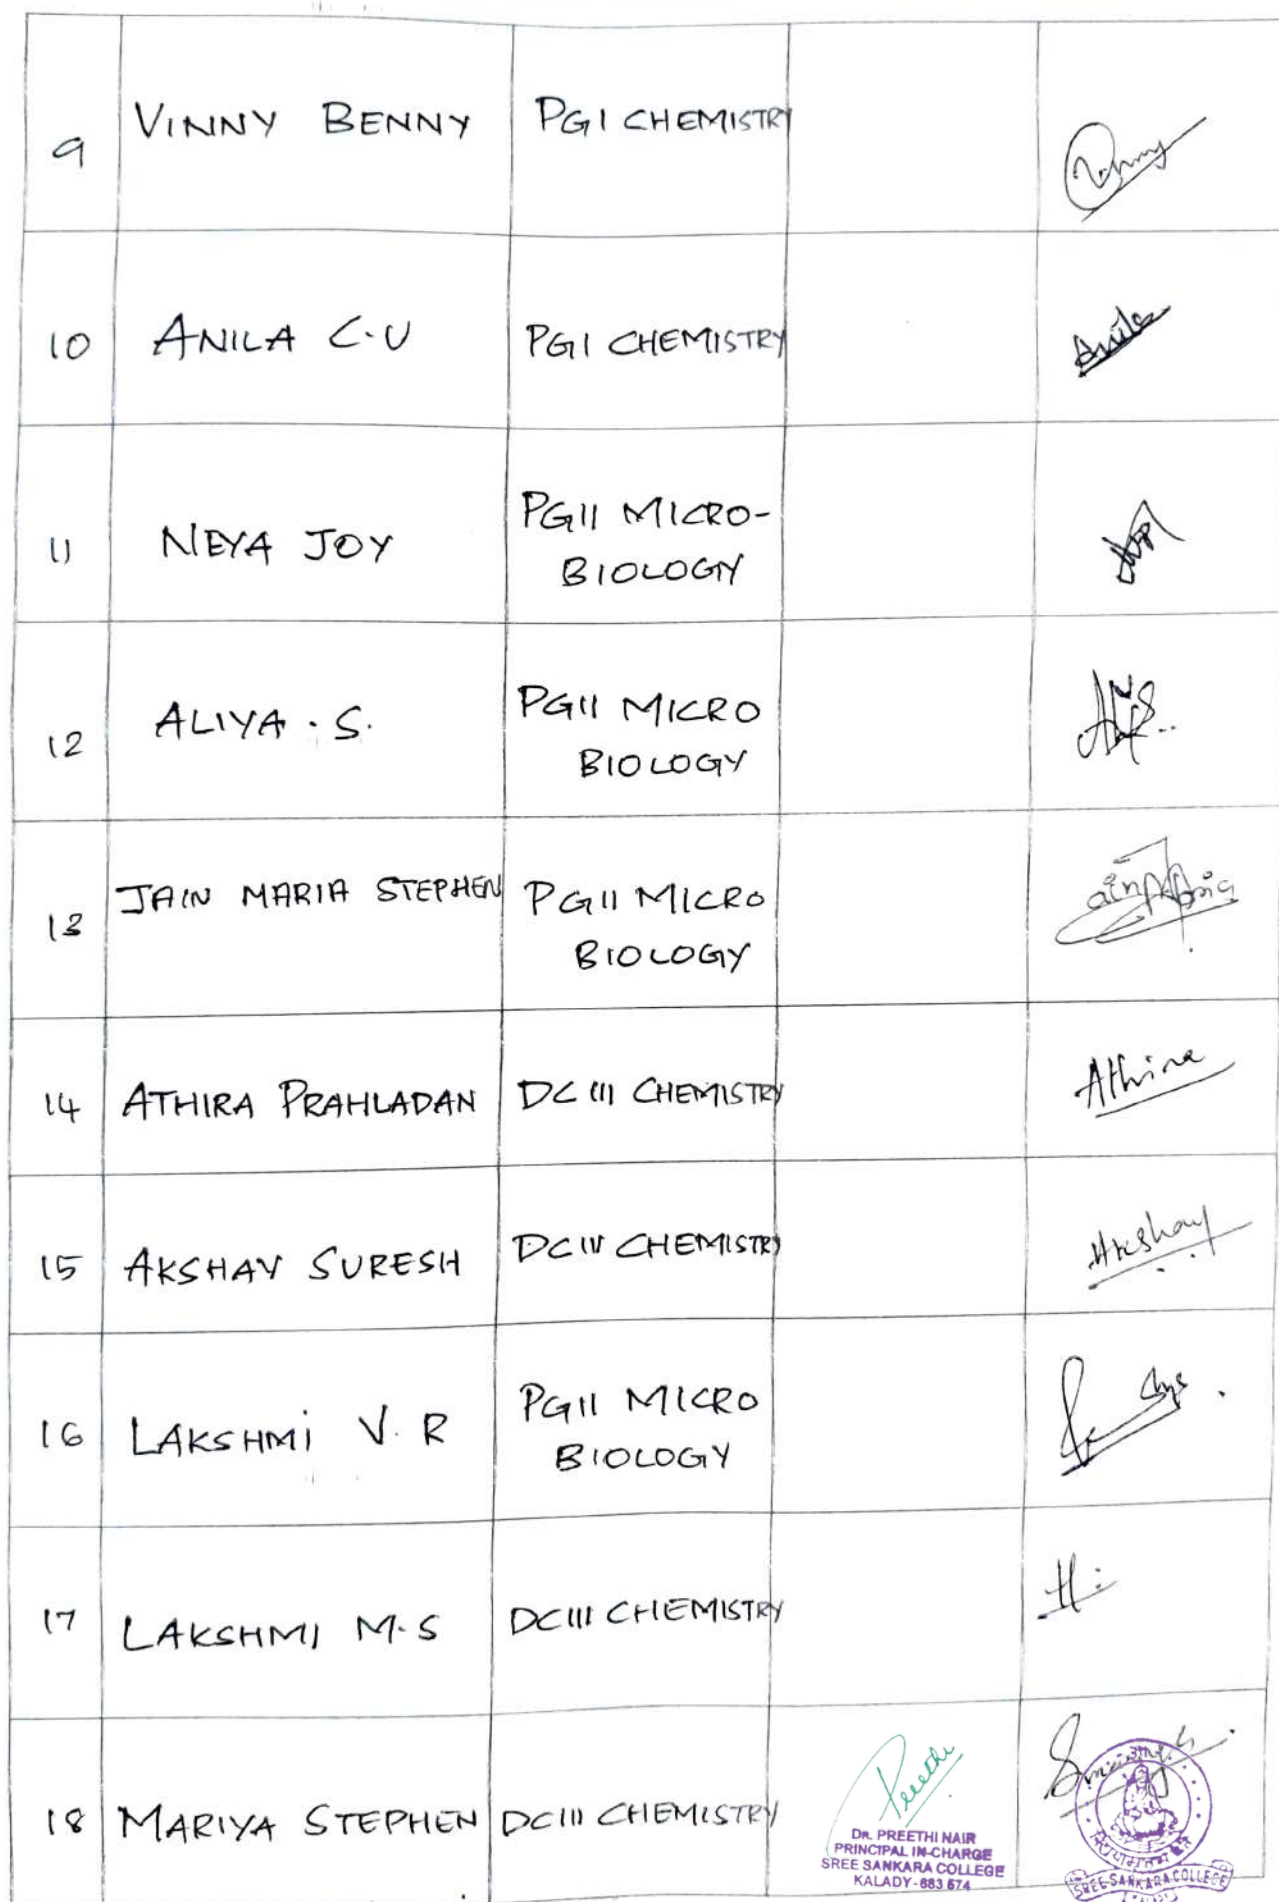 9 VINNY BENNY PGI CHEMISTRY Vinny
10 ANILA C.U PGI CHEMISTRY Anila
11 NEYA JOY PGII MICRO-
BIOLOGY
12 ALIYA . S. PGII MICRO
BIOLOGY
13 JAIN MARIA STEPHEN PGII MICRO
BIOLOGY
14 ATHIRA PRAHLADAN DC III CHEMISTRY Athira
15 AKSHAY SURESH DC IV CHEMISTRY Akshay
16 LAKSHMi V. R PGII MICRO
BIOLOGY
17 LAKSHMI M.S DCIII CHEMISTRY
18 MARIYA STEPHEN DCIII CHEMISTRY
Preethi
DR. PREETHI NAIR
PRINCIPAL IN-CHARGE
SREE SANKARA COLLEGE
KALADY-683 574
SREE SANKARA COLLEGE